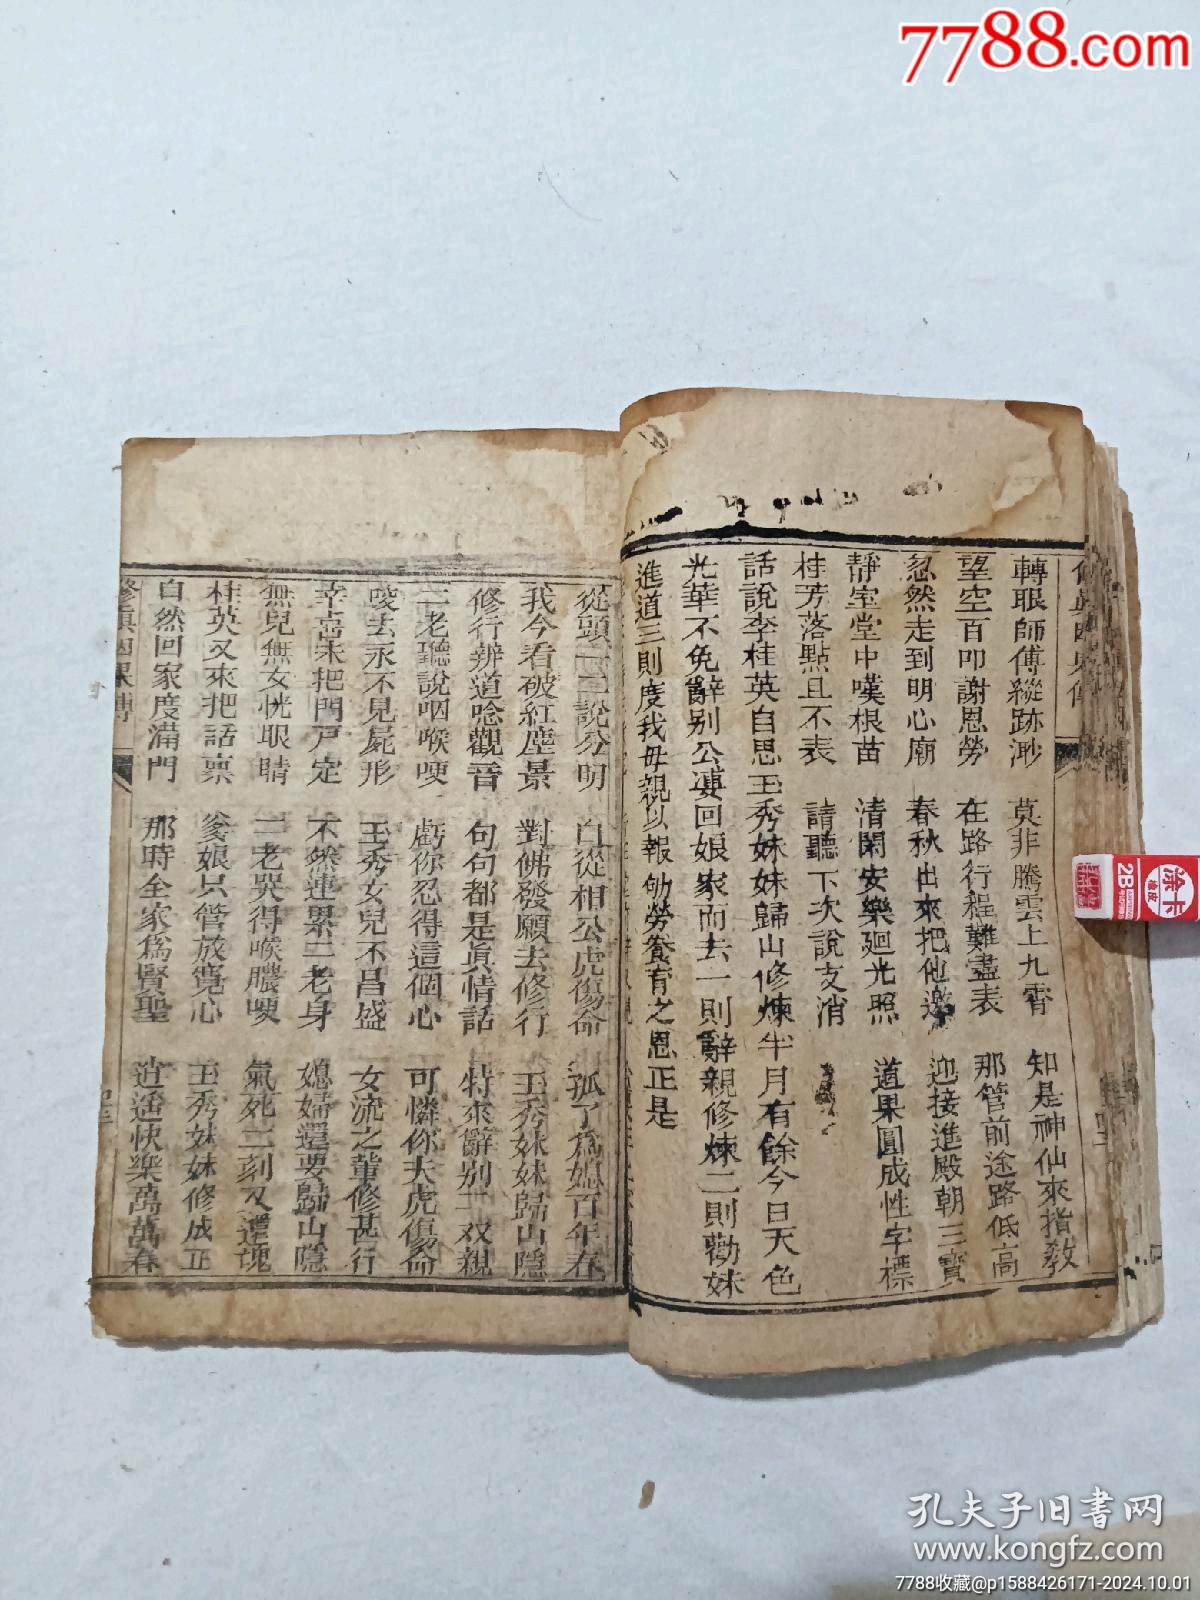 7788.com
轉眼師傅縱跡渺 莫非騰雲上九霄 知是神仙來指教
望空百叩謝恩勞 在路行程難盡表 那管前途路低高
忽然走到明心廟 春秋出來把他邀 迎接進殿朝三寶
靜室堂中嘆根苗 清閑安樂廻光照 道果圓成性字標
桂芳落點且不表 請聽下次說支消
話說李桂英自思玉秀妹妹歸山修煉半月有餘今日天色
光華不免辭别公婆回娘家而去一則辭親修煉二則勸妹
進道三則度我母親以報劬勞養育之恩正是
從頭一二說分明 自從相公虎傷命 孤了為媳百年春
我今看破紅塵景 對佛發願去修行 玉秀妹妹歸山隱
修行辨道唸觀音 句句都是眞情話 特來辭别二双親
二老聽說咽喉哽 虧你忍得這個心 可憐你夫虎傷命
唆去永不見屍形 玉秀女兒不昌盛 女流之輩修甚行
幸喜未把門戸定 不然連累二老身 媳婦還要歸山隱
無兒無女恍眼睛 二老哭得喉膿哽 氣死二刻又還魂
桂英又來把話禀 爹娘只管放寬心 玉秀妹妹修成正
自然回家度滿門 那時全家為賢聖 逍遥快樂萬萬春
修眞因果傳
涂卡
橡皮
2B
孔夫子旧书网
www.kongfz.com
7788收藏@p1588426171-2024.10.01